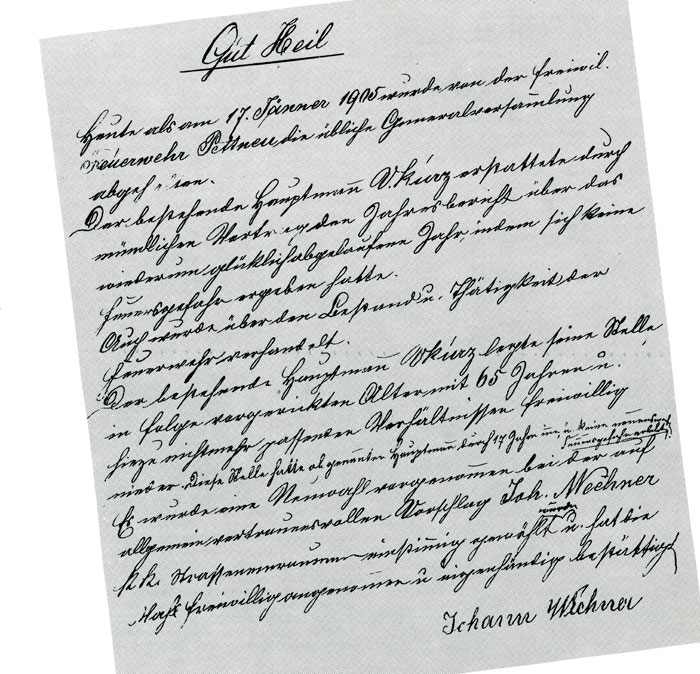 Gut Heil
Heute als am 17. Jänner 1905 wurde von der freiwil.
Feuerwehr Pettneu die übliche Generalversammlung
abgehalten.
Der bestehende Hauptmann V. Kurz erstattete durch
mündlichen Vortrag den Jahresbericht über das
wiederum glücklich abgelaufene Jahr, indem sich keine
Feuersgefahr ergeben hatte.
Auch wurde über den Bestand u. Thätigkeit der
Feuerwehr verhandelt.
Der bestehende Hauptmann V Kurz legte seine Stelle
in folge vorgerückten Alter mit 65 Jahren u.
hiezu nichtmehr passenden Verhältnissen freiwillig
nieder. Diese Stelle hatte als genannter Hauptmann durch 17 Jahre inne, u. keine
Es wurde eine Neuwahl vorgenommen bei der auf
allgemein vertrauensvollen Vorschlag Joh. Wechner
k.k. Strasseneinraumer einstimmig gewählt wurde u. hat die
Wahl freiwillig angenommen u eigenhändig bestättigt
Johann Wechner